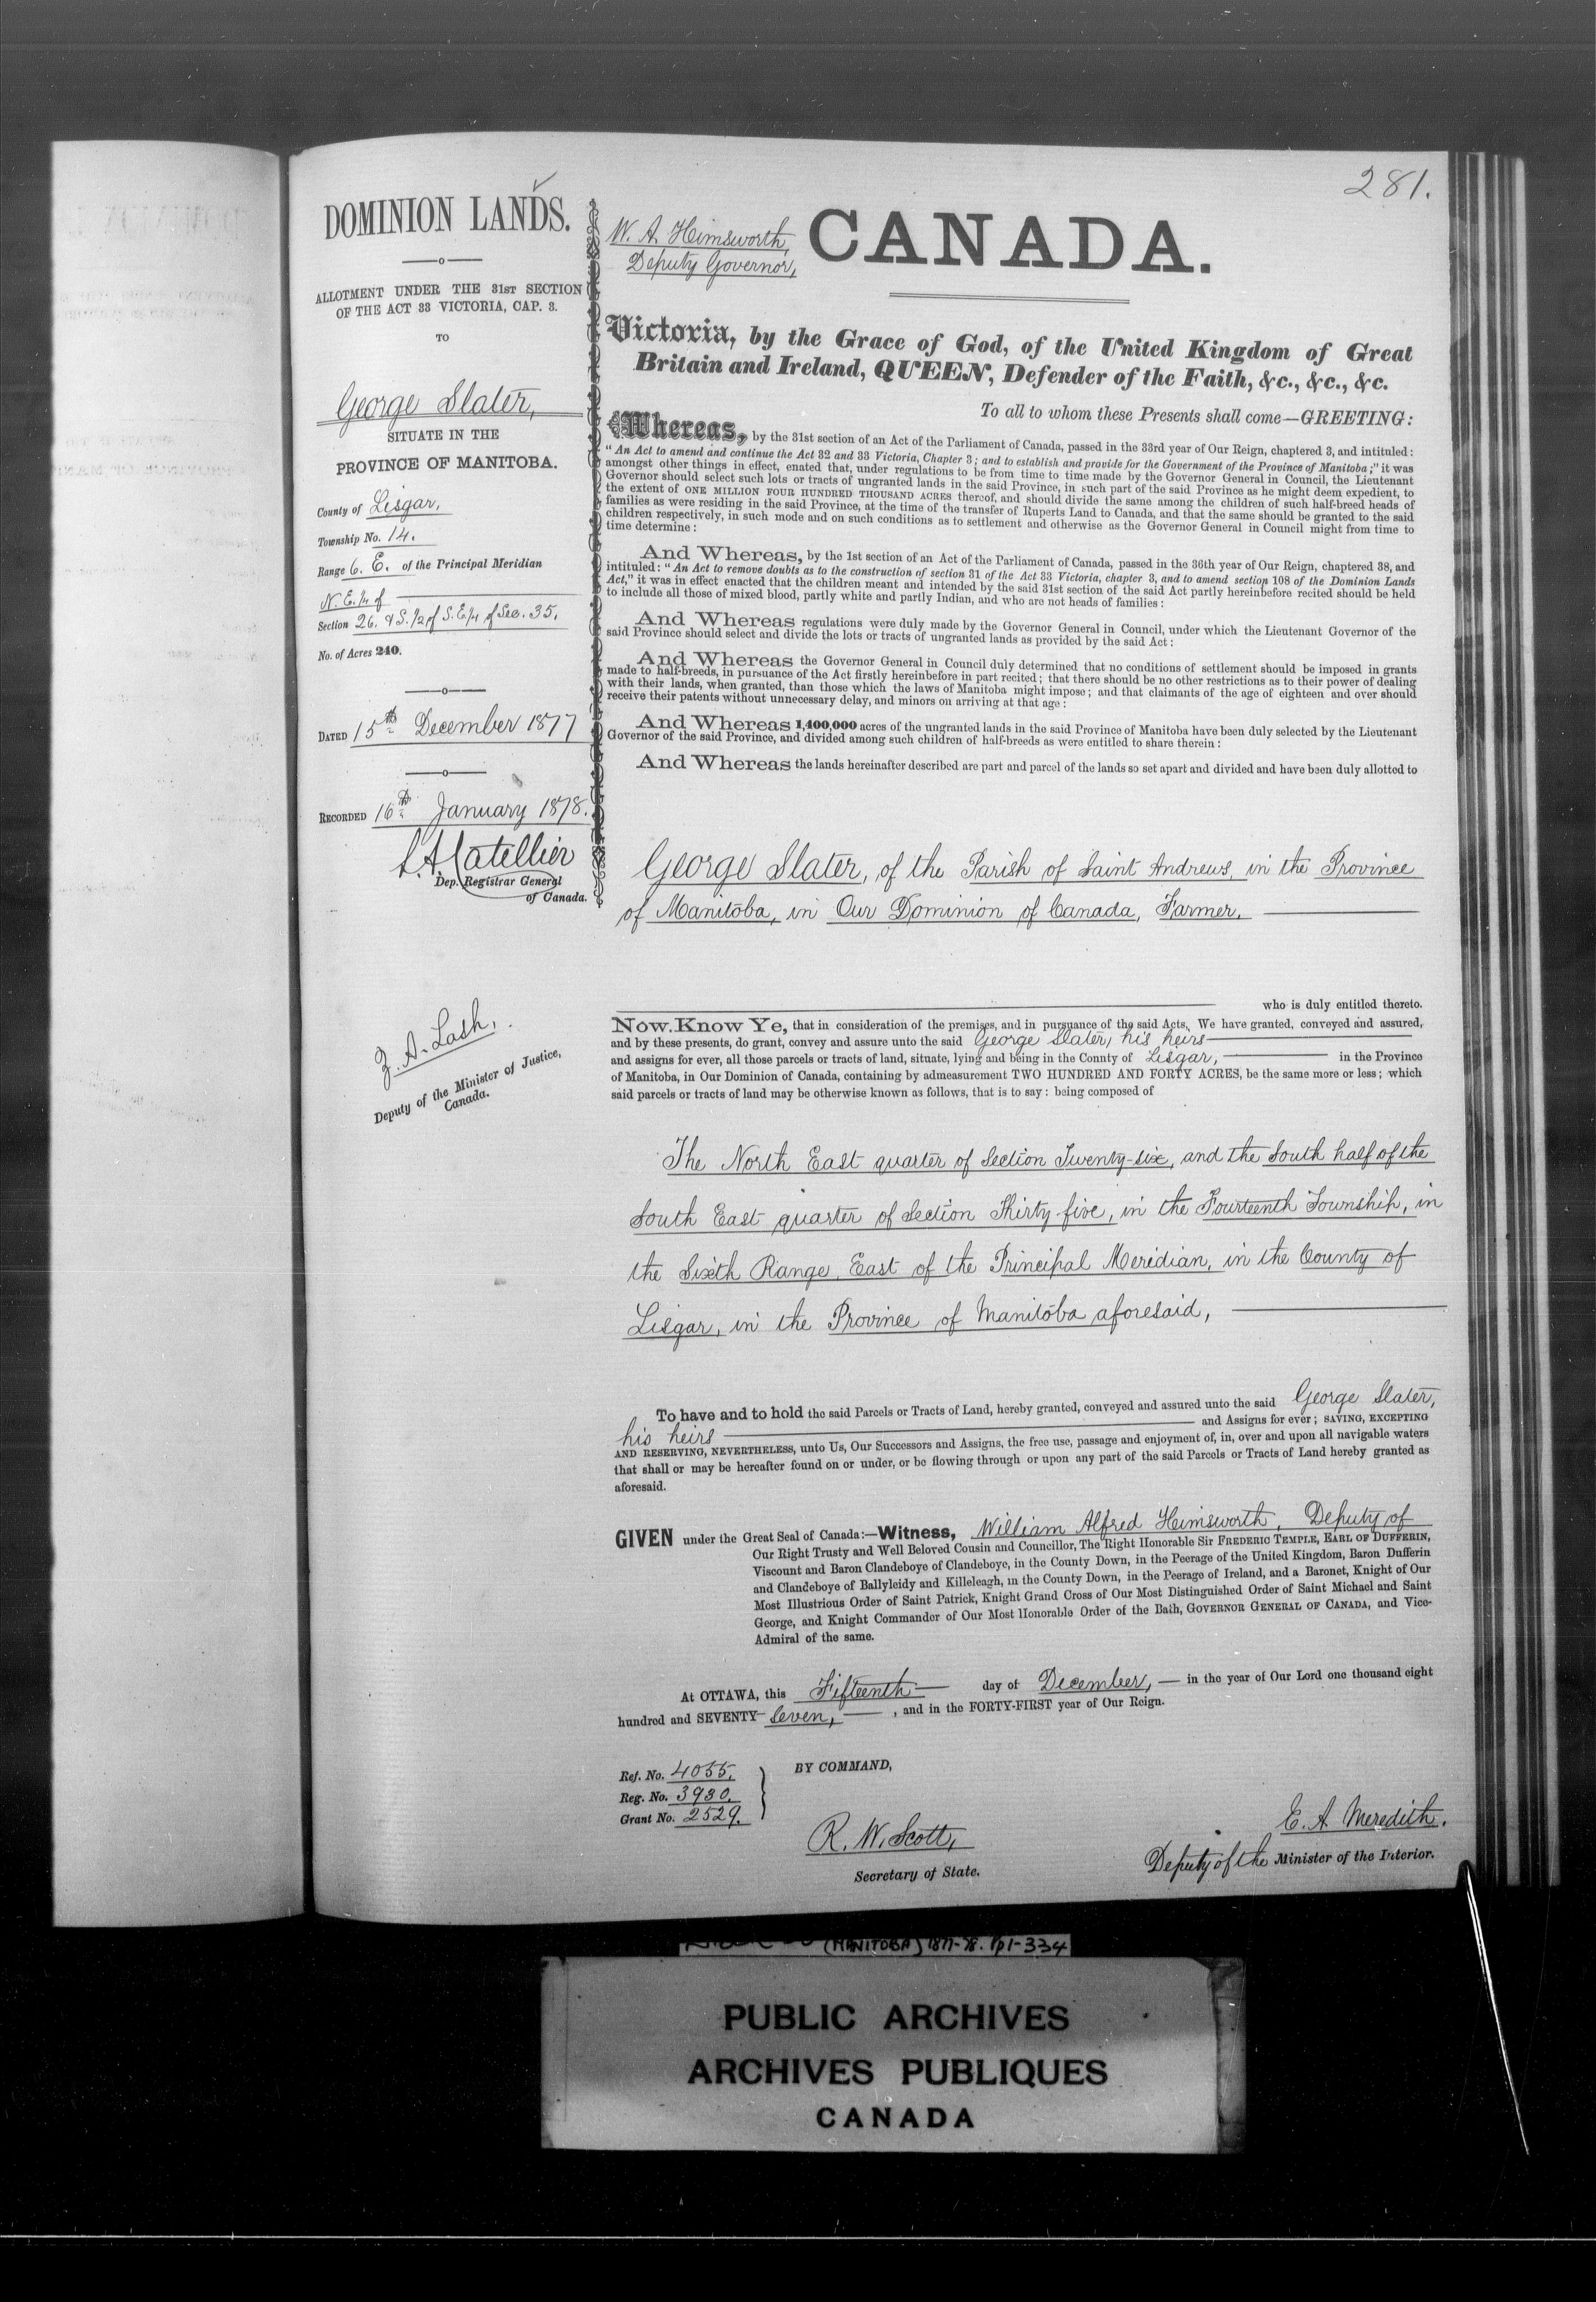 281.
DOMINION LANDS.
ALLOTMENT UNDER THE 31ST SECTION
OF THE ACT 33 VICTORIA, CAP. 3.
TO
George Slater,
SITUATE IN THE
PROVINCE OF MANITOBA.
County of Lisgar,
Township No. 14.
Range 6. E. of the Principal Meridian
N.E.1/4 of
Section 26. & S.1/2 of S.E1/4 of Sec. 35.
No. of Acres 240.
DATED 15th December 1877
RECORDED 16th January 1878.
L.A. Catellier
Dep. Registrar General
of Canada.
Z. A. Lash,
Deputy of the Minister of Justice,
Canada.
W. A. Himsworth,
Deputy Governor,
CANADA.
Victoria, by the Grace of God, of the United Kingdom of Great
Britain and Ireland, QUEEN, Defender of the Faith, &c., &c., &c.
To all to whom these Presents shall come—GREETING:
Whereas, by the 31st section of an Act of the Parliament of Canada, passed in the 33rd year of Our Reign, chaptered 3, and intituled:
"An Act to amend and continue the Act 32 and 33 Victoria, Chapter 3; and to establish and provide for the Government of the Province of Manitoba;" it was
amongst other things in effect, enated that, under regulations to be from time to time made by the Governor General in Council, the Lieutenant
Governor should select such lots or tracts of ungranted lands in the said Province, in such part of the said Province as he might deem expedient, to
the extent of ONE MILLION FOUR HUNDRED THOUSAND ACRES thereof, and should divide the same among the children of such half-breed heads of
families as were residing in the said Province, at the time of the transfer of Ruperts Land to Canada, and that the same should be granted to the said
children respectively, in such mode and on such conditions as to settlement and otherwise as the Governor General in Council might from time to
time determine:
And Whereas, by the 1st section of an Act of the Parliament of Canada, passed in the 36th year of Our Reign, chaptered 38, and
intituled: "An Act to remove doubts as to the construction of section 31 of the Act 33 Victoria, chapter 3, and to amend section 108 of the Dominion Lands
Act," it was in effect enacted that the children meant and intended by the said 31st section of the said Act partly hereinbefore recited should be held
to include all those of mixed blood, partly white and partly Indian, and who are not heads of families:
And Whereas regulations were duly made by the Governor General in Council, under which the Lieutenant Governor of the
said Province should select and divide the lots or tracts of ungranted lands as provided by the said Act:
And Whereas the Governor General in Council duly determined that no conditions of settlement should be imposed in grants
made to half-breeds, in pursuance of the Act firstly hereinbefore in part recited; that there should be no other restrictions as to their power of dealing
with their lands, when granted, than those which the laws of Manitoba might impose; and that claimants of the age of eighteen and over should
receive their patents without unnecessary delay, and minors on arriving at that age:
And Whereas 1,400,000 acres of the ungranted lands in the said Province of Manitoba have been duly selected by the Lieutenant
Governor of the said Province, and divided among such children of half-breeds as were entitled to share therein:
And Whereas the lands hereinafter described are part and parcel of the lands so set apart and divided and have been duly allotted to
George Slater, of the Parish of Saint Andrews, in the Province
of Manitoba, in Our Dominion of Canada, Farmer.
who is duly entitled thereto.
Now Know Ye, that in consideration of the premises, and in pursuance of the said Acts, We have granted, conveyed and assured,
and by these presents, do grant, convey and assure unto the said George Slater, his heirs
and assigns for ever, all those parcels or tracts of land, situate, lying and being in the County of Lisgar, in the Province
of Manitoba, in Our Dominion of Canada, containing by admeasurement TWO HUNDRED AND FORTY ACRES, be the same more or less; which
said parcels or tracts of land may be otherwise known as follows, that is to say: being composed of
The North East quarter of Section Twenty-six, and the South half of the
South East quarter of Section Thirty-five, in the Fourteenth Township, in
the Sixth Range, East of the Principal Meridian, in the County of
Lisgar, in the Province of Manitoba aforesaid,
To have and to hold the said Parcels or Tracts of Land, hereby granted, conveyed and assured unto the said George Slater,
his heirs and Assigns for ever; SAVING, EXCEPTING
AND RESERVING, NEVERTHELESS, unto Us, Our Successors and Assigns, the free use, passage and enjoyment of, in, over and upon all navigable waters
that shall or may be hereafter found on or under, or be flowing through or upon any part of the said Parcels or Tracts of Land hereby granted as
aforesaid.
GIVEN under the Great Seal of Canada:—Witness, William Alfred Himsworth, Deputy of
Our Right Trusty and Well Beloved Cousin and Councillor, The Right Honorable Sir FREDERIC TEMPLE, EARL OF DUFFERIN,
Viscount and Baron Clandeboye of Clandeboye, in the County Down, in the Peerage of the United Kingdom, Baron Dufferin
and Clandeboye of Ballyleidy and Killeleagh, in the County Down, in the Peerage of Ireland, and a Baronet, Knight of Our
Most Illustrious Order of Saint Patrick, Knight Grand Cross of Our Most Distinguished Order of Saint Michael and Saint
George, and Knight Commander of Our Most Honorable Order of the Bath, GOVERNOR GENERAL OF CANADA, and Vice-
Admiral of the same.
At OTTAWA, this Fifteenth day of December, in the year of Our Lord one thousand eight
hundred and SEVENTY-Seven, , and in the FORTY-FIRST year of Our Reign.
Ref. No. 4055.
Reg. No. 3930.
Grant No. 2529.
BY COMMAND,
R. W. Scott,
Secretary of State.
E. A. Meredith.
Deputy of the Minister of the Interior.
(MANITOBA) 1877-78. Pp1-334
PUBLIC ARCHIVES
ARCHIVES PUBLIQUES
CANADA